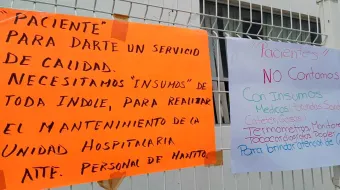 "PACIENTE"
PARA DARTE UN SERVICIO
DE CALIDAD.
NECESITAMOS "INSUMOS" DE
TODA INDOLE, PARA REALIZAR
EL MANTENIMIENTO DE LA
UNIDAD HOSPITALARIA
ATTE. PERSONAL DE MANTTO.
Pacientes
NO Contamos
Con Insumos
Medicos
Termometros
Para brindar atencion de